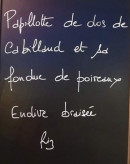 Papillotte de dos de
Cabillaud et sa
fondue de poireaux
Endive braisée
Riz